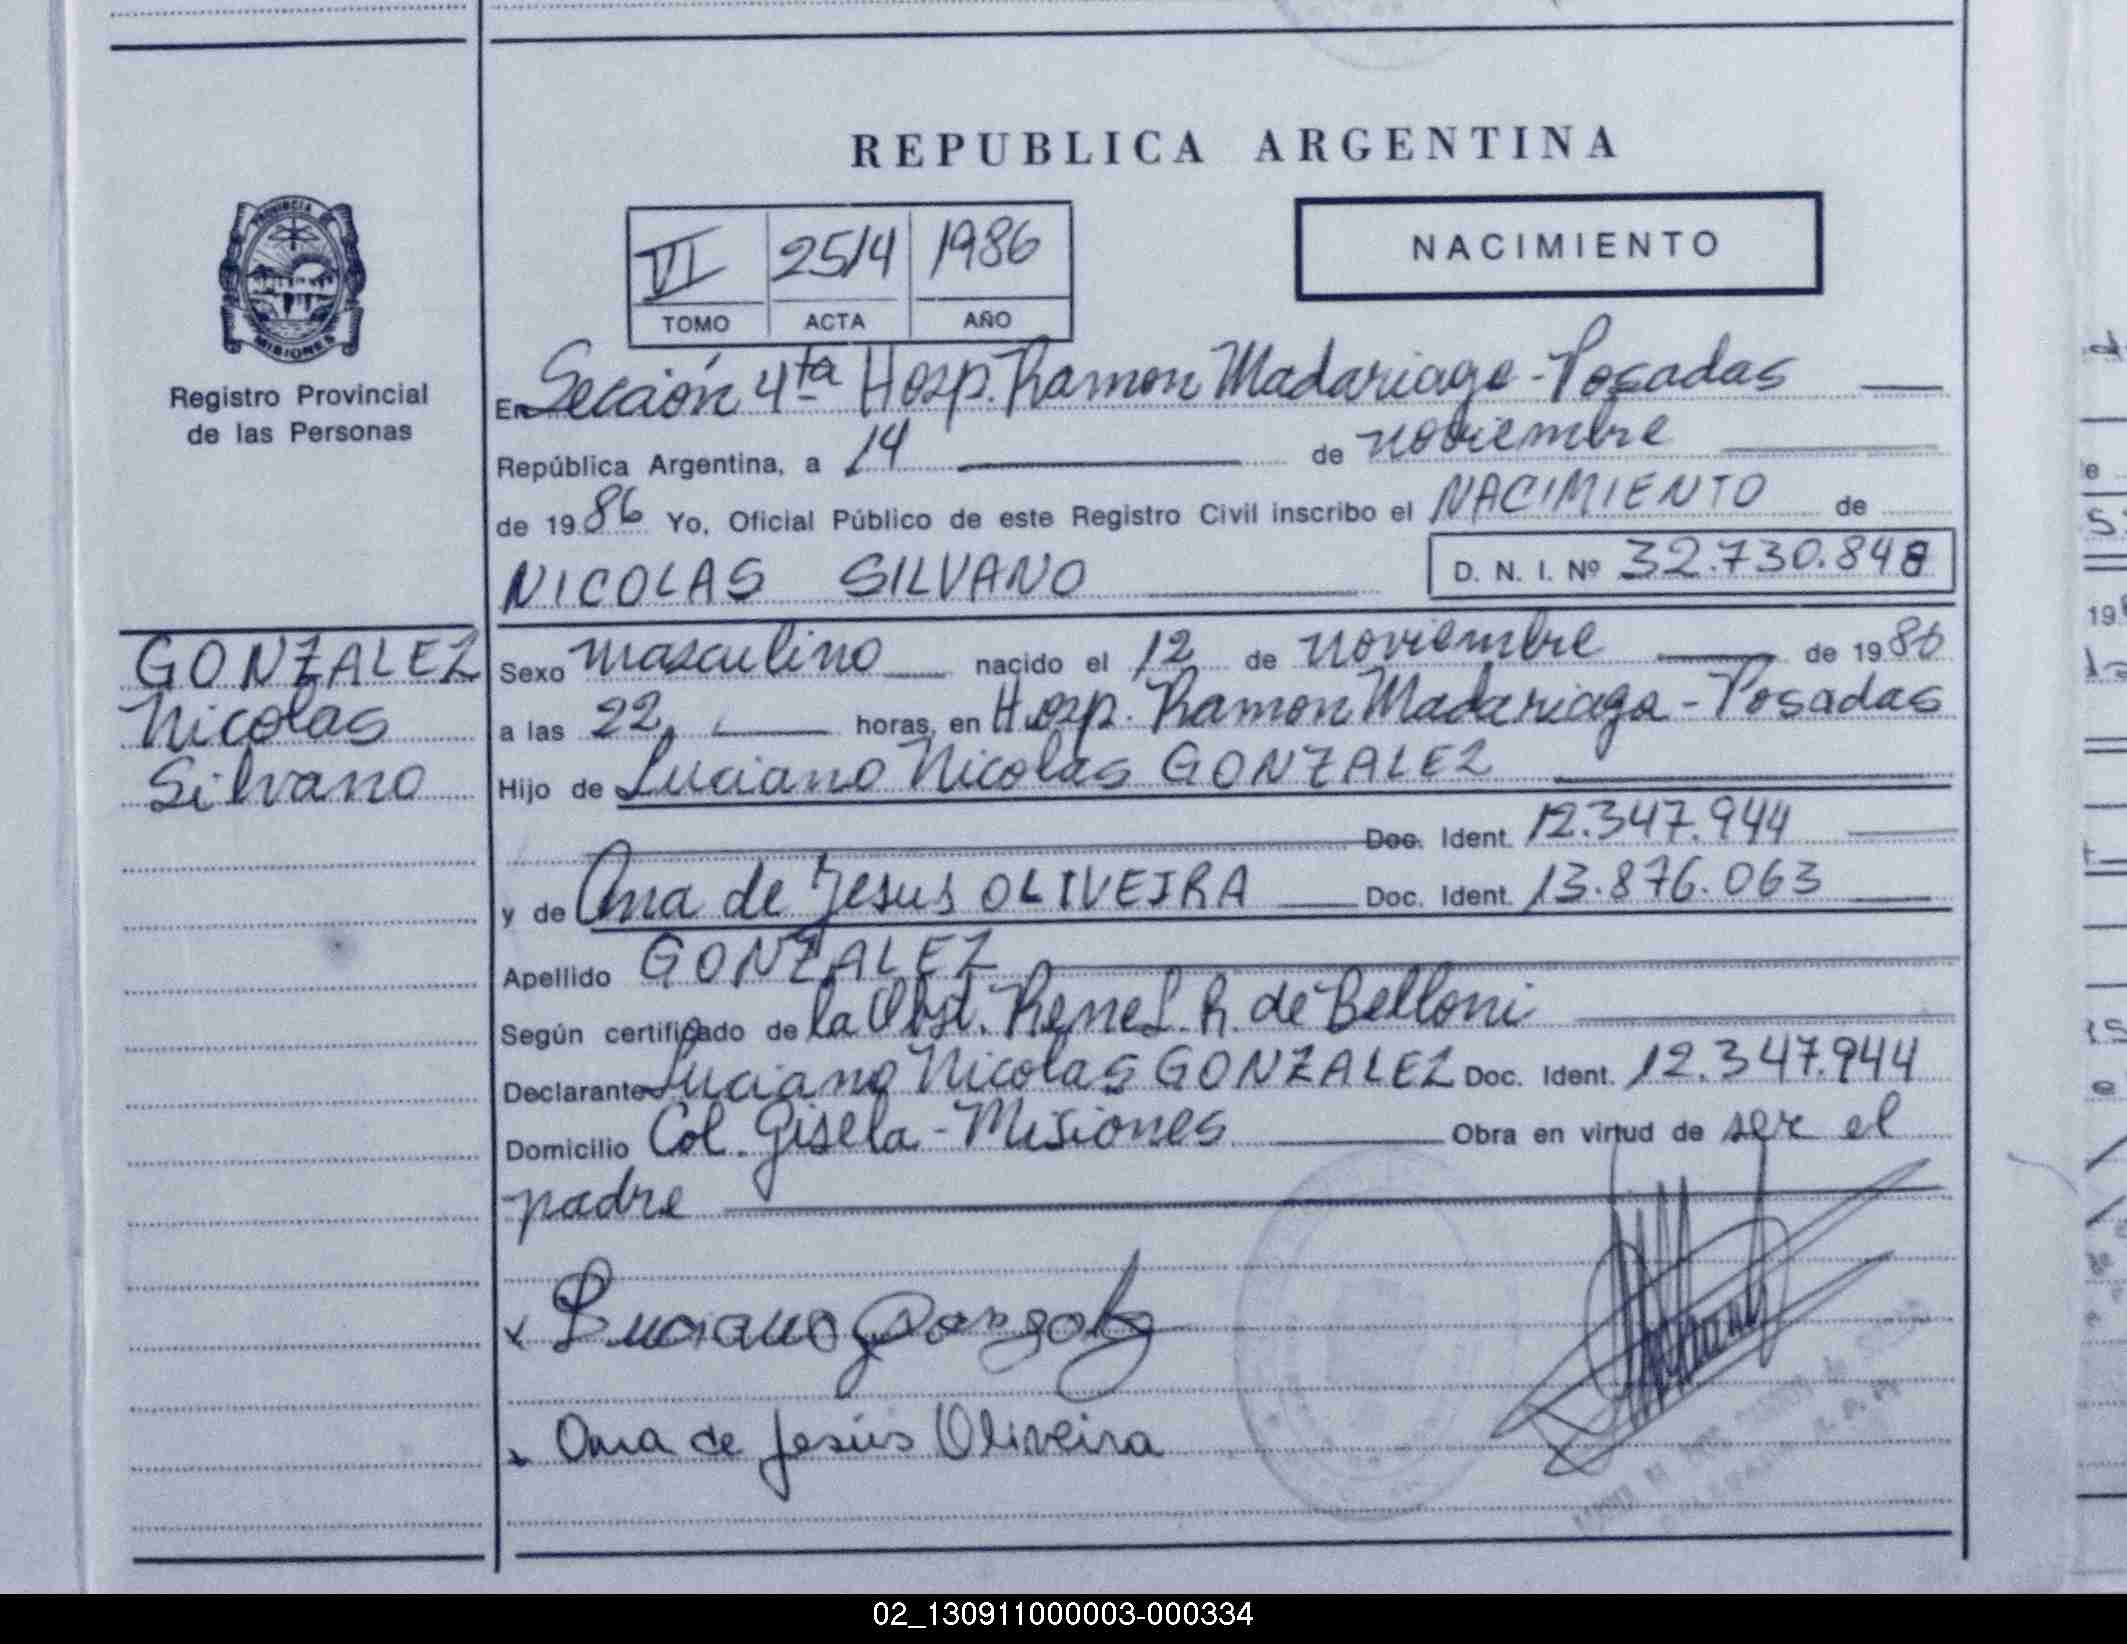 REPUBLICA ARGENTINA
PROVINCIA DE
MISIONES
Registro Provincial
de las Personas
VI 2514 1986
TOMO ACTA AÑO
NACIMIENTO
En Sección 4ta Hosp. Ramon Madariaga - Posadas
República Argentina, a 14 de noviembre
de 1986 Yo, Oficial Público de este Registro Civil inscribo el NACIMIENTO de
NICOLAS SILVANO D. N. I. Nº 32.730.848
GONZALEZ
Nicolas
Silvano
Sexo masculino nacido el 12 de noviembre de 1986
a las 22, horas, en Hosp. Ramon Madariaga - Posadas
Hijo de Luciano Nicolas GONZALEZ
Doc. Ident. 12.347.944
y de Ana de Jesus OLIVEIRA Doc. Ident. 13.876.063
Apellido GONZALEZ
Según certificado de la Obst. Rene L. R. de Belloni
Declarante Luciano Nicolas GONZALEZ Doc. Ident. 12.347.944
Domicilio Col. Gisela - Misiones Obra en virtud de ser el
padre
x Luciano Gonzalez
x Ana de Jesús Oliveira
02_130911000003-000334